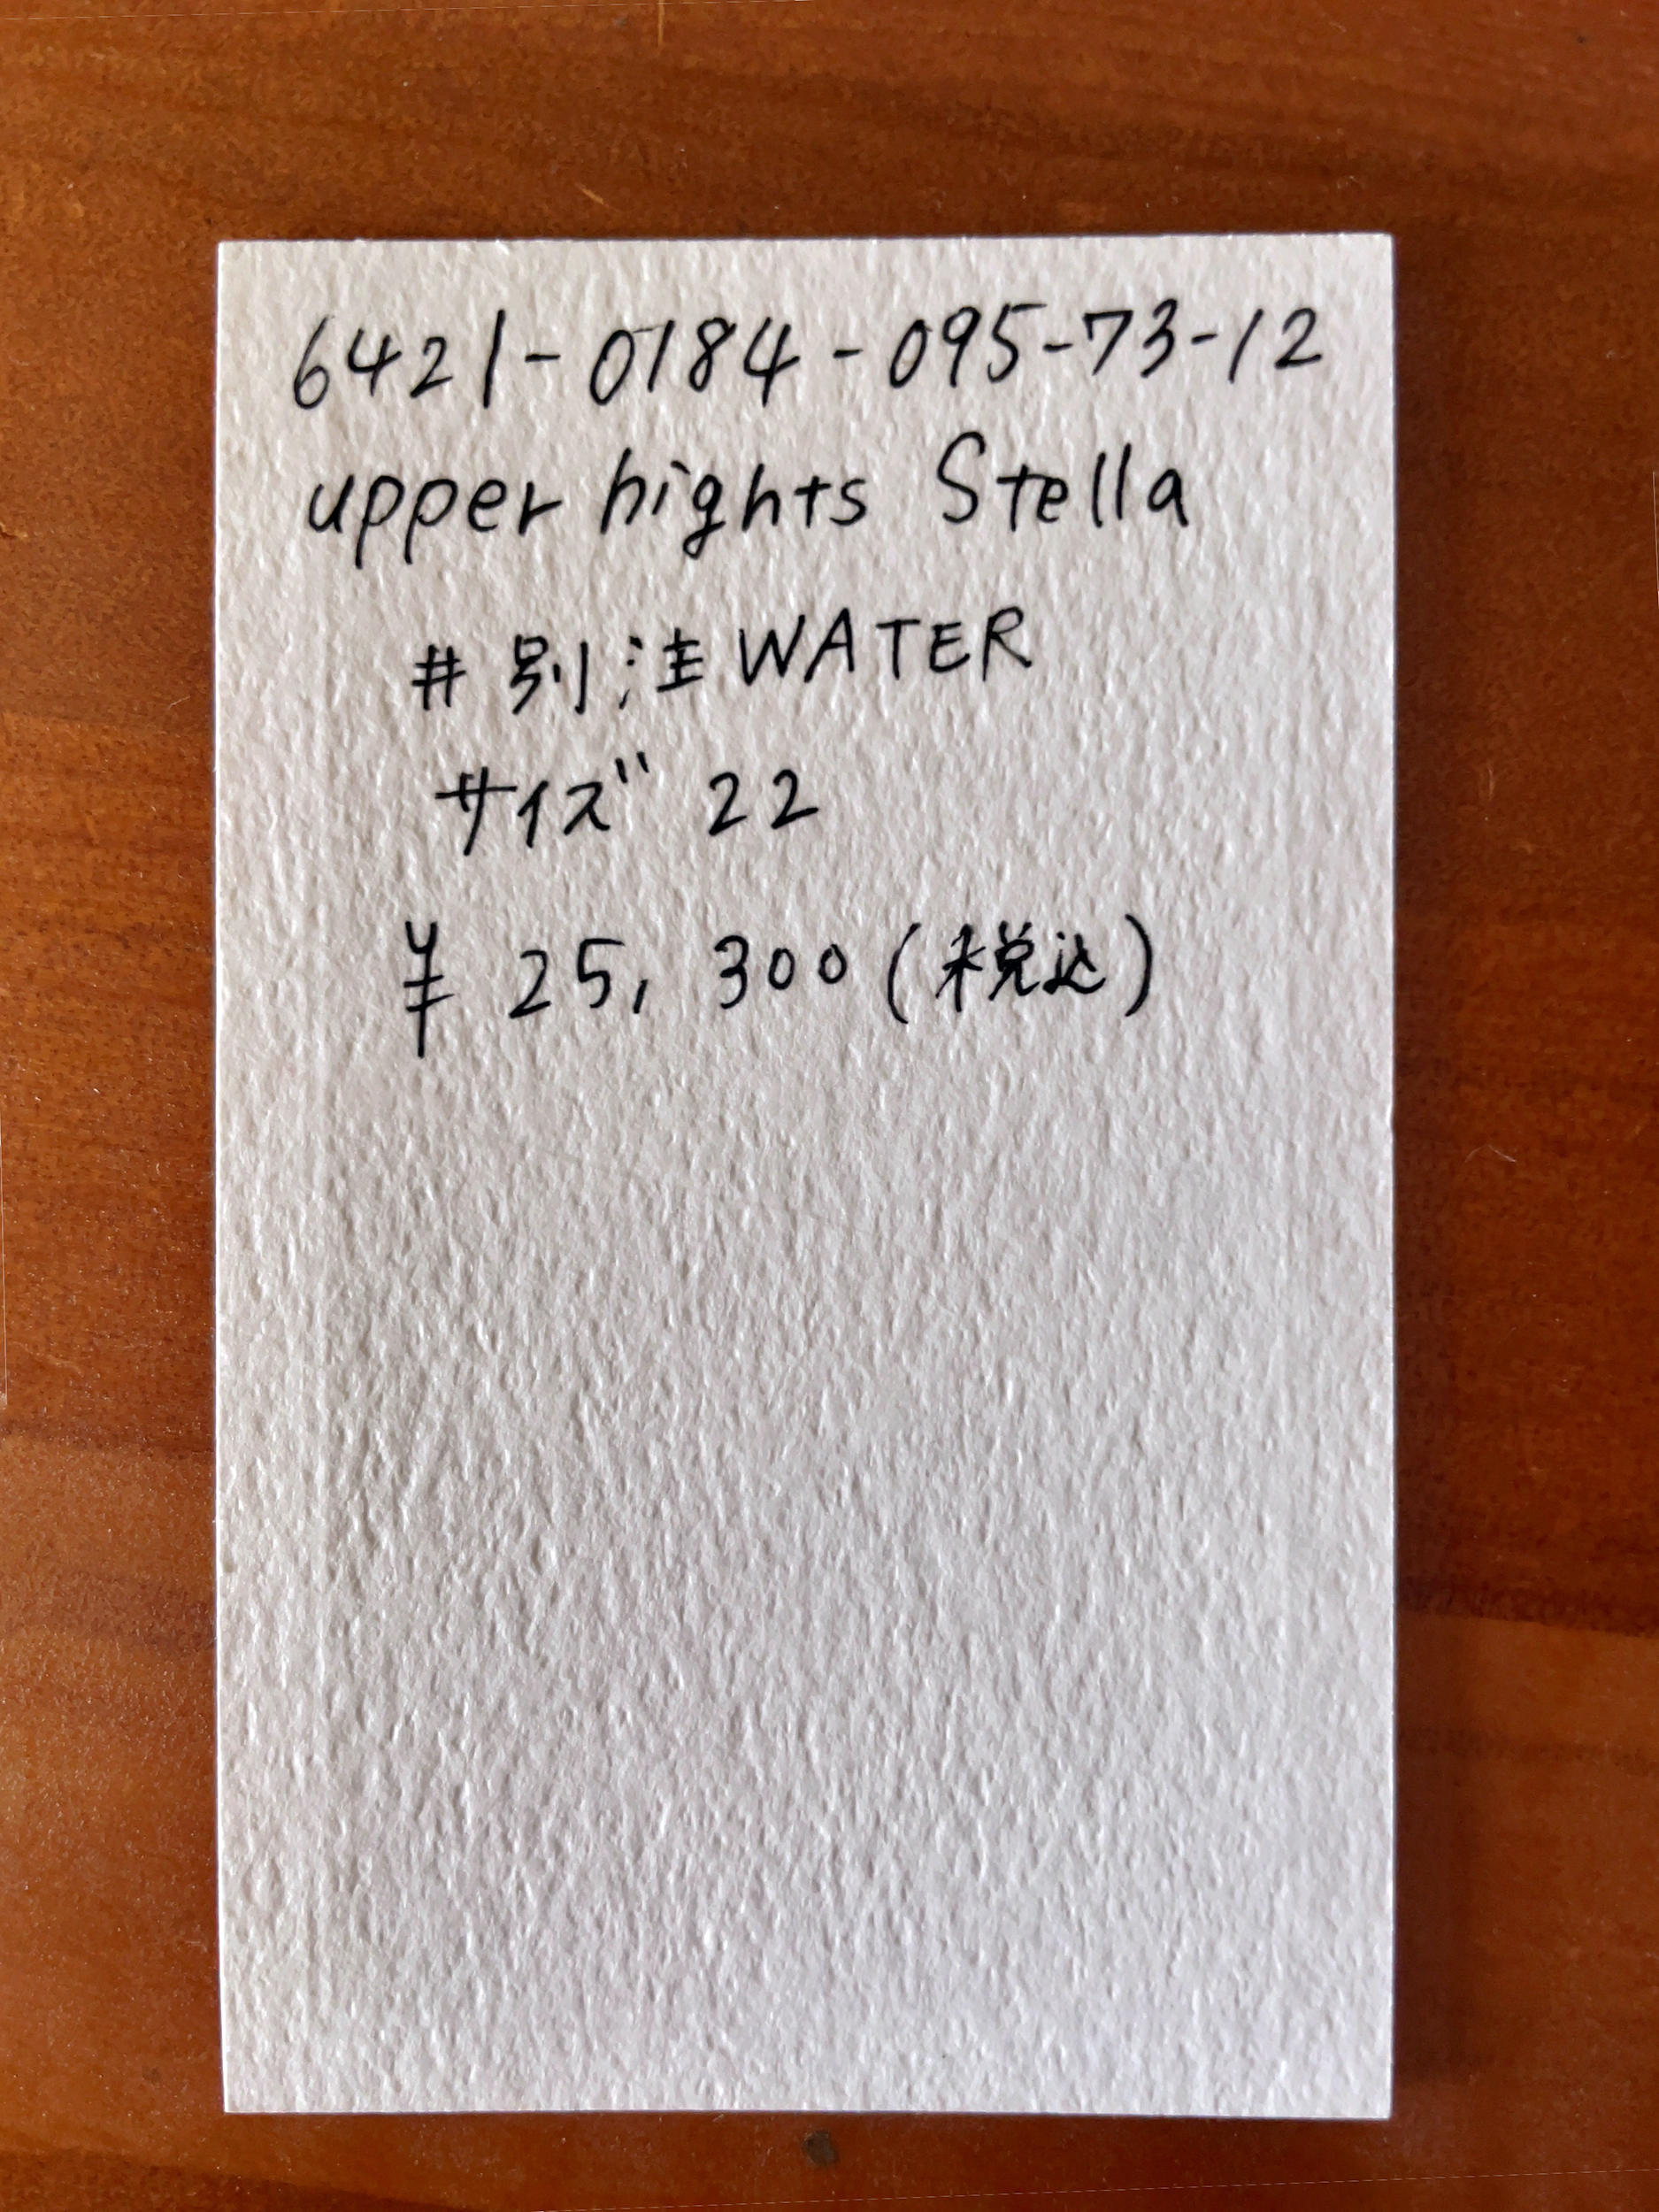 6421-0184-095-73-12
upper hights Stella
# 別注WATER
サイズ 22
¥ 25,300(税込)